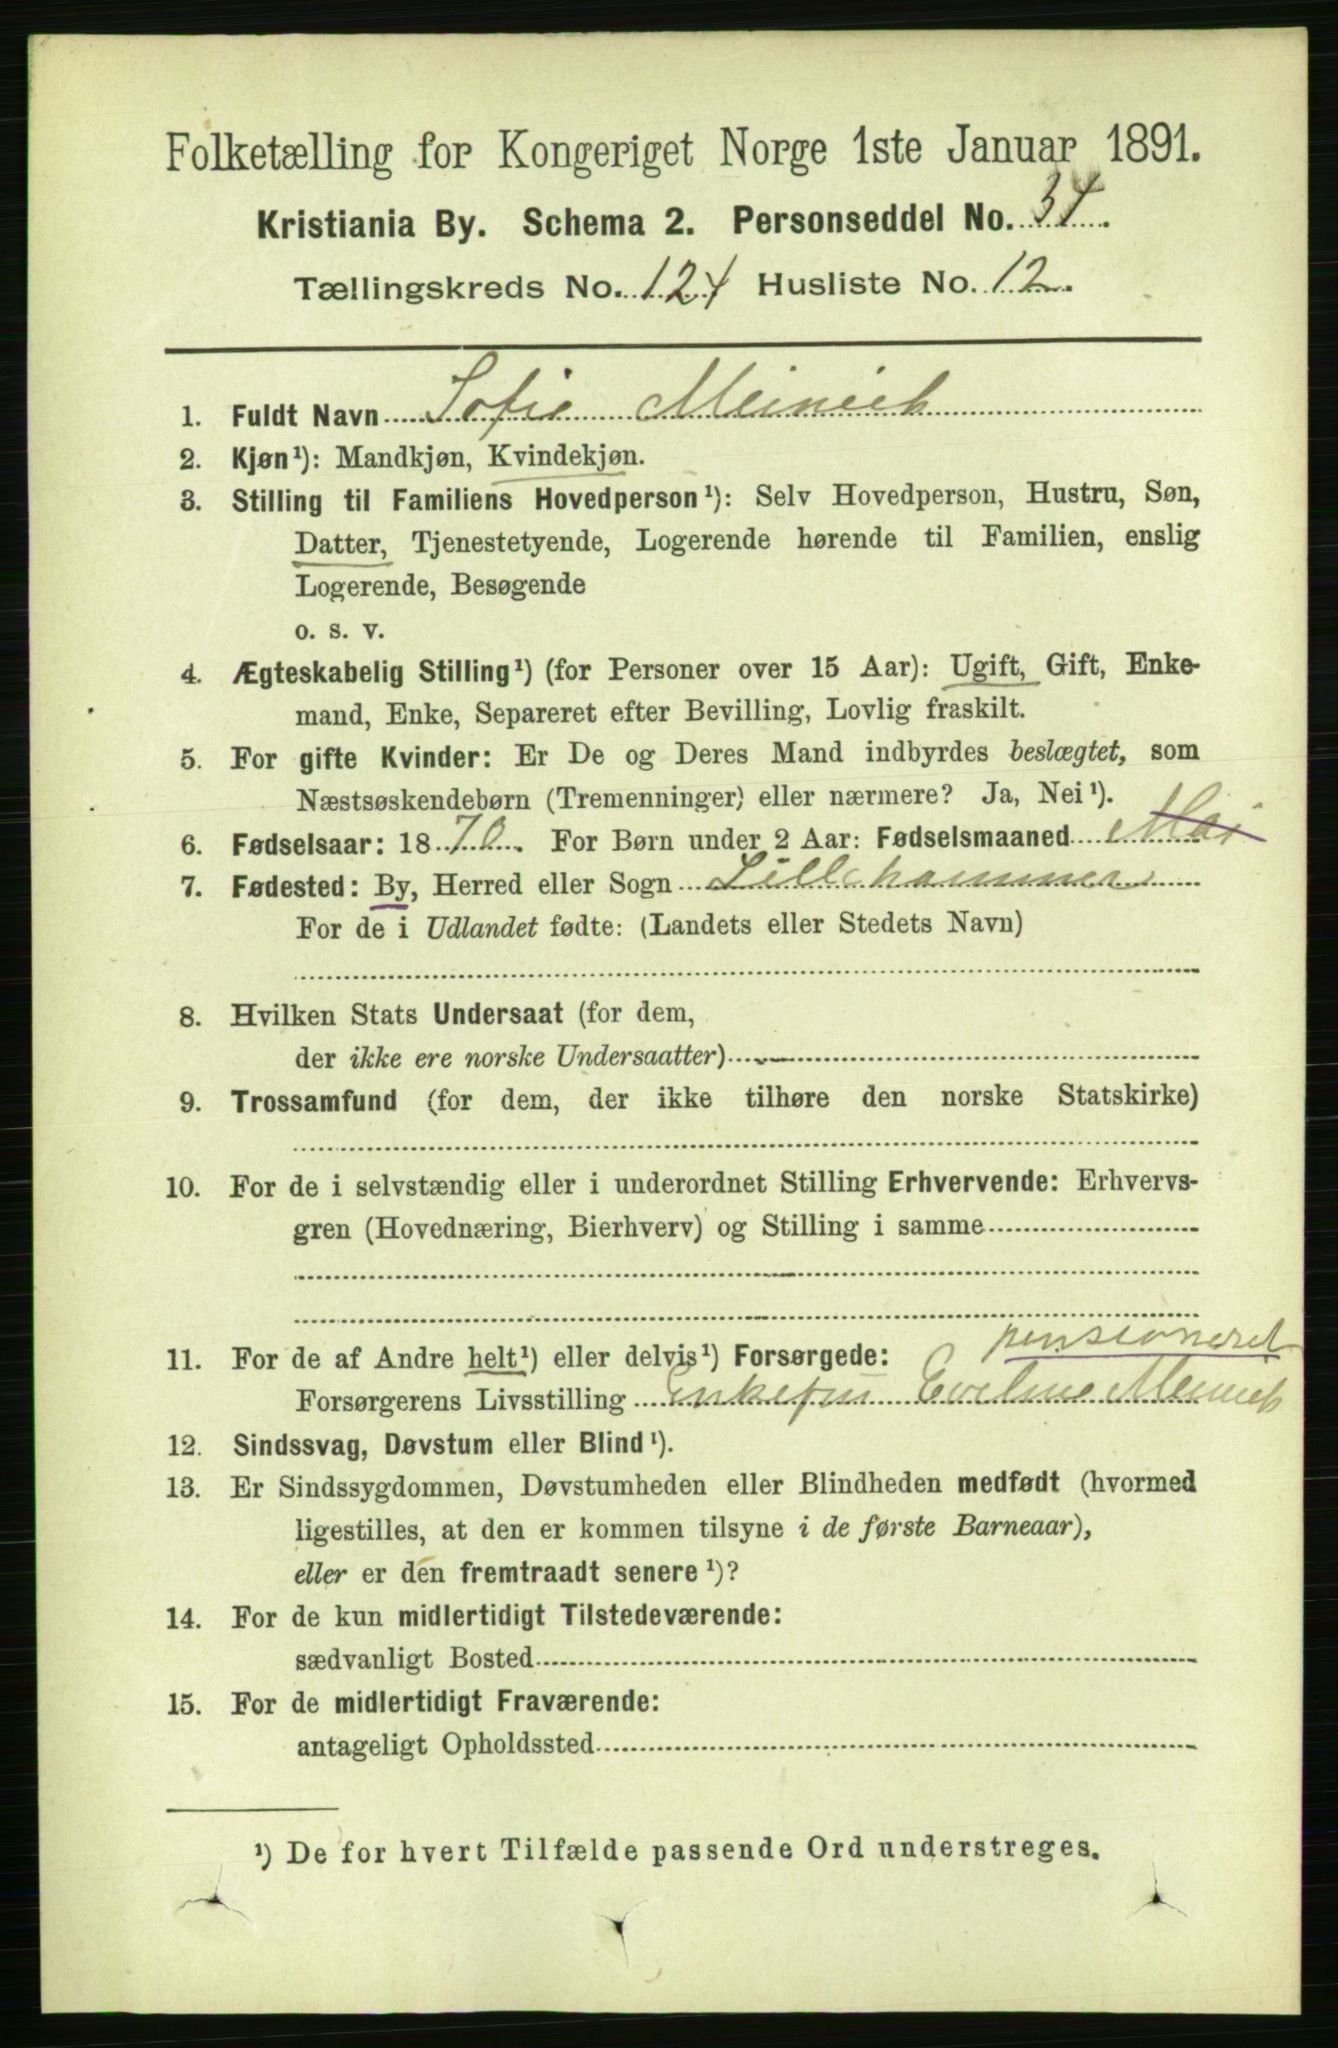 Folketælling for Kongeriget Norge 1ste Januar 1891.
Kristiania By. Schema 2. Personseddel No. 34.
Tællingskreds No. 124 Husliste No. 12.
1. Fuldt Navn Sofie Meinich
2. Kjøn¹): Mandkjøn, Kvindekjøn.
3. Stilling til Familiens Hovedperson¹): Selv Hovedperson, Hustru, Søn,
Datter, Tjenestetyende, Logerende hørende til Familien, enslig
Logerende, Besøgende
o. s. v.
4. Ægteskabelig Stilling¹) (for Personer over 15 Aar): Ugift, Gift, Enke-
mand, Enke, Separeret efter Bevilling, Lovlig fraskilt.
5. For gifte Kvinder: Er De og Deres Mand indbyrdes beslægtet, som
Næstsøskendebørn (Tremenninger) eller nærmere? Ja, Nei¹).
6. Fødselsaar: 1870. For Børn under 2 Aar: Fødselsmaaned Mai
7. Fødested: By, Herred eller Sogn Lillehammer
For de i Udlandet fødte: (Landets eller Stedets Navn)
8. Hvilken Stats Undersaat (for dem,
der ikke ere norske Undersaatter)
9. Trossamfund (for dem, der ikke tilhøre den norske Statskirke)
10. For de i selvstændig eller i underordnet Stilling Erhvervende: Erhvervs-
gren (Hovednæring, Bierhverv) og Stilling i samme
pensioneret
11. For de af Andre helt¹) eller delvis¹) Forsørgede:
Forsørgerens Livsstilling Enkefru Eveline Meinich
12. Sindssvag, Døvstum eller Blind¹).
13. Er Sindssygdommen, Døvstumheden eller Blindheden medfødt (hvormed
ligestilles, at den er kommen tilsyne i de første Barneaar),
eller er den fremtraadt senere¹)?
14. For de kun midlertidigt Tilstedeværende:
sædvanligt Bosted
15. For de midlertidigt Fraværende:
antageligt Opholdssted
¹) De for hvert Tilfælde passende Ord understreges.